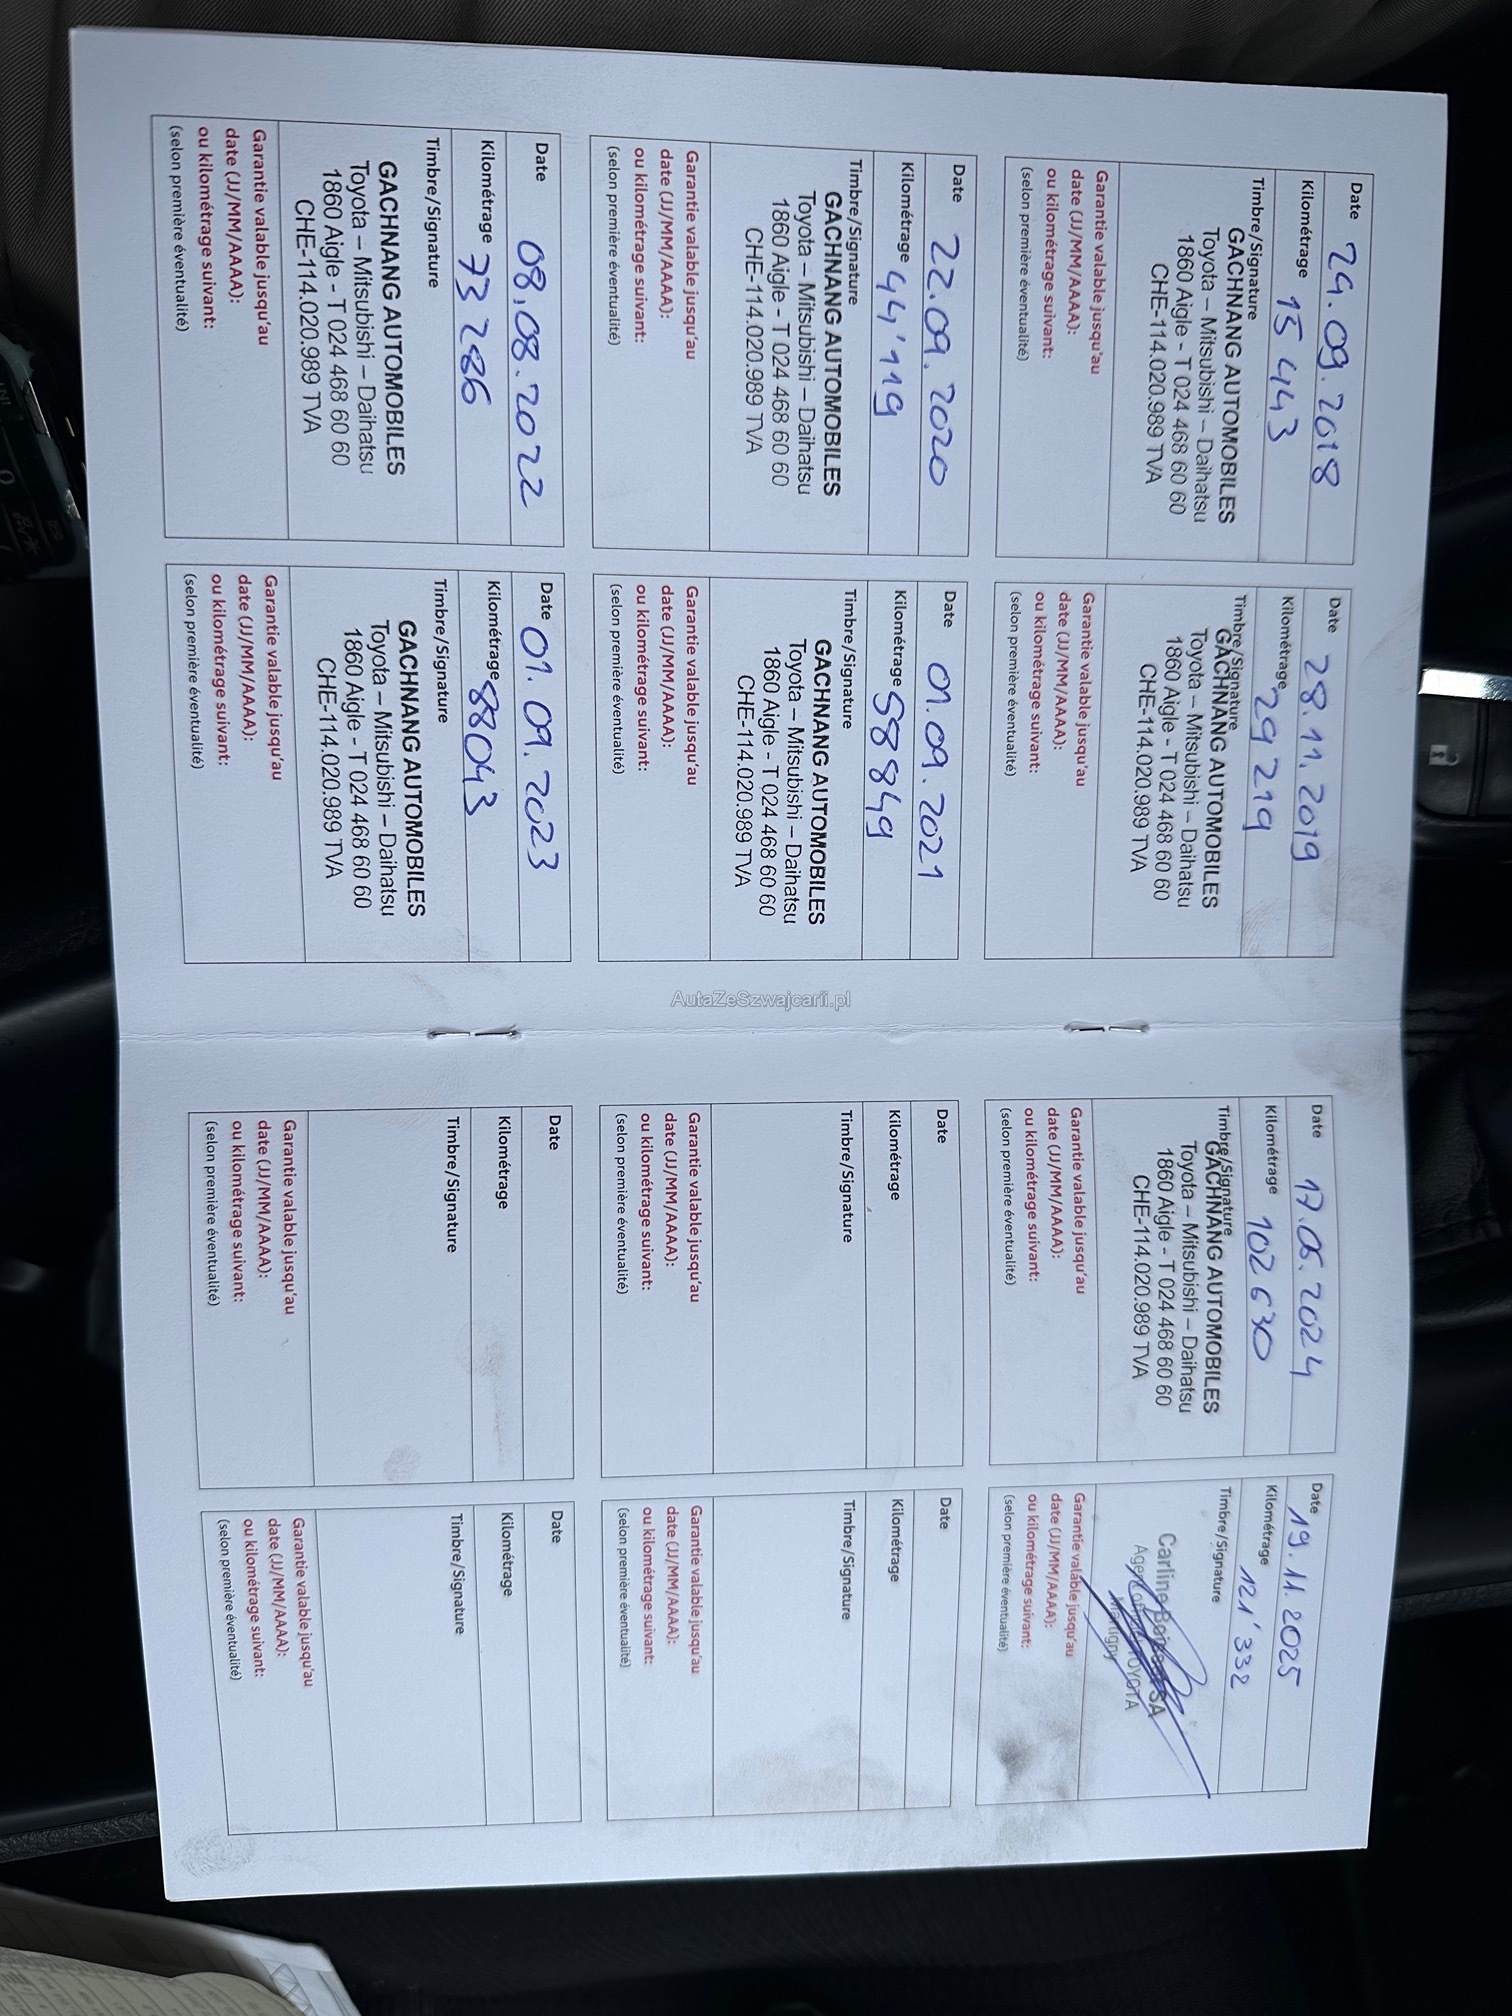 Date 24.09.2018
Kilométrage 15 443
Timbre/Signature
GACHNANG AUTOMOBILES
Toyota – Mitsubishi – Daihatsu
1860 Aigle - T 024 468 60 60
CHE-114.020.989 TVA
Garantie valable jusqu'au
date (JJ/MM/AAAA):
ou kilométrage suivant:
(selon première éventualité)
Date 28.11.2019
Kilométrage 29 219
Timbre/Signature
GACHNANG AUTOMOBILES
Toyota – Mitsubishi – Daihatsu
1860 Aigle - T 024 468 60 60
CHE-114.020.989 TVA
Garantie valable jusqu'au
date (JJ/MM/AAAA):
ou kilométrage suivant:
(selon première éventualité)
Date 22.09.2020
Kilométrage 44'119
Timbre/Signature
GACHNANG AUTOMOBILES
Toyota – Mitsubishi – Daihatsu
1860 Aigle - T 024 468 60 60
CHE-114.020.989 TVA
Garantie valable jusqu'au
date (JJ/MM/AAAA):
ou kilométrage suivant:
(selon première éventualité)
Date 01.09.2021
Kilométrage 58849
Timbre/Signature
GACHNANG AUTOMOBILES
Toyota – Mitsubishi – Daihatsu
1860 Aigle - T 024 468 60 60
CHE-114.020.989 TVA
Garantie valable jusqu'au
date (JJ/MM/AAAA):
ou kilométrage suivant:
(selon première éventualité)
Date 08.08.2022
Kilométrage 73 286
Timbre/Signature
GACHNANG AUTOMOBILES
Toyota – Mitsubishi – Daihatsu
1860 Aigle - T 024 468 60 60
CHE-114.020.989 TVA
Garantie valable jusqu'au
date (JJ/MM/AAAA):
ou kilométrage suivant:
(selon première éventualité)
Date 01.09.2023
Kilométrage 88043
Timbre/Signature
GACHNANG AUTOMOBILES
Toyota – Mitsubishi – Daihatsu
1860 Aigle - T 024 468 60 60
CHE-114.020.989 TVA
Garantie valable jusqu'au
date (JJ/MM/AAAA):
ou kilométrage suivant:
(selon première éventualité)
AutaZeSzwajcarii.pl
Date 17.06.2024
Kilométrage 102 630
Timbre/Signature
GACHNANG AUTOMOBILES
Toyota – Mitsubishi – Daihatsu
1860 Aigle - T 024 468 60 60
CHE-114.020.989 TVA
Garantie valable jusqu'au
date (JJ/MM/AAAA):
ou kilométrage suivant:
(selon première éventualité)
Date 19.11.2025
Kilométrage 121'332
Timbre/Signature
Carline SA
TOYOTA
Martigny
Garantie valable jusqu'au
date (JJ/MM/AAAA):
ou kilométrage suivant:
(selon première éventualité)
Date
Kilométrage
Timbre/Signature
Garantie valable jusqu'au
date (JJ/MM/AAAA):
ou kilométrage suivant:
(selon première éventualité)
Date
Kilométrage
Timbre/Signature
Garantie valable jusqu'au
date (JJ/MM/AAAA):
ou kilométrage suivant:
(selon première éventualité)
Date
Kilométrage
Timbre/Signature
Garantie valable jusqu'au
date (JJ/MM/AAAA):
ou kilométrage suivant:
(selon première éventualité)
Date
Kilométrage
Timbre/Signature
Garantie valable jusqu'au
date (JJ/MM/AAAA):
ou kilométrage suivant:
(selon première éventualité)